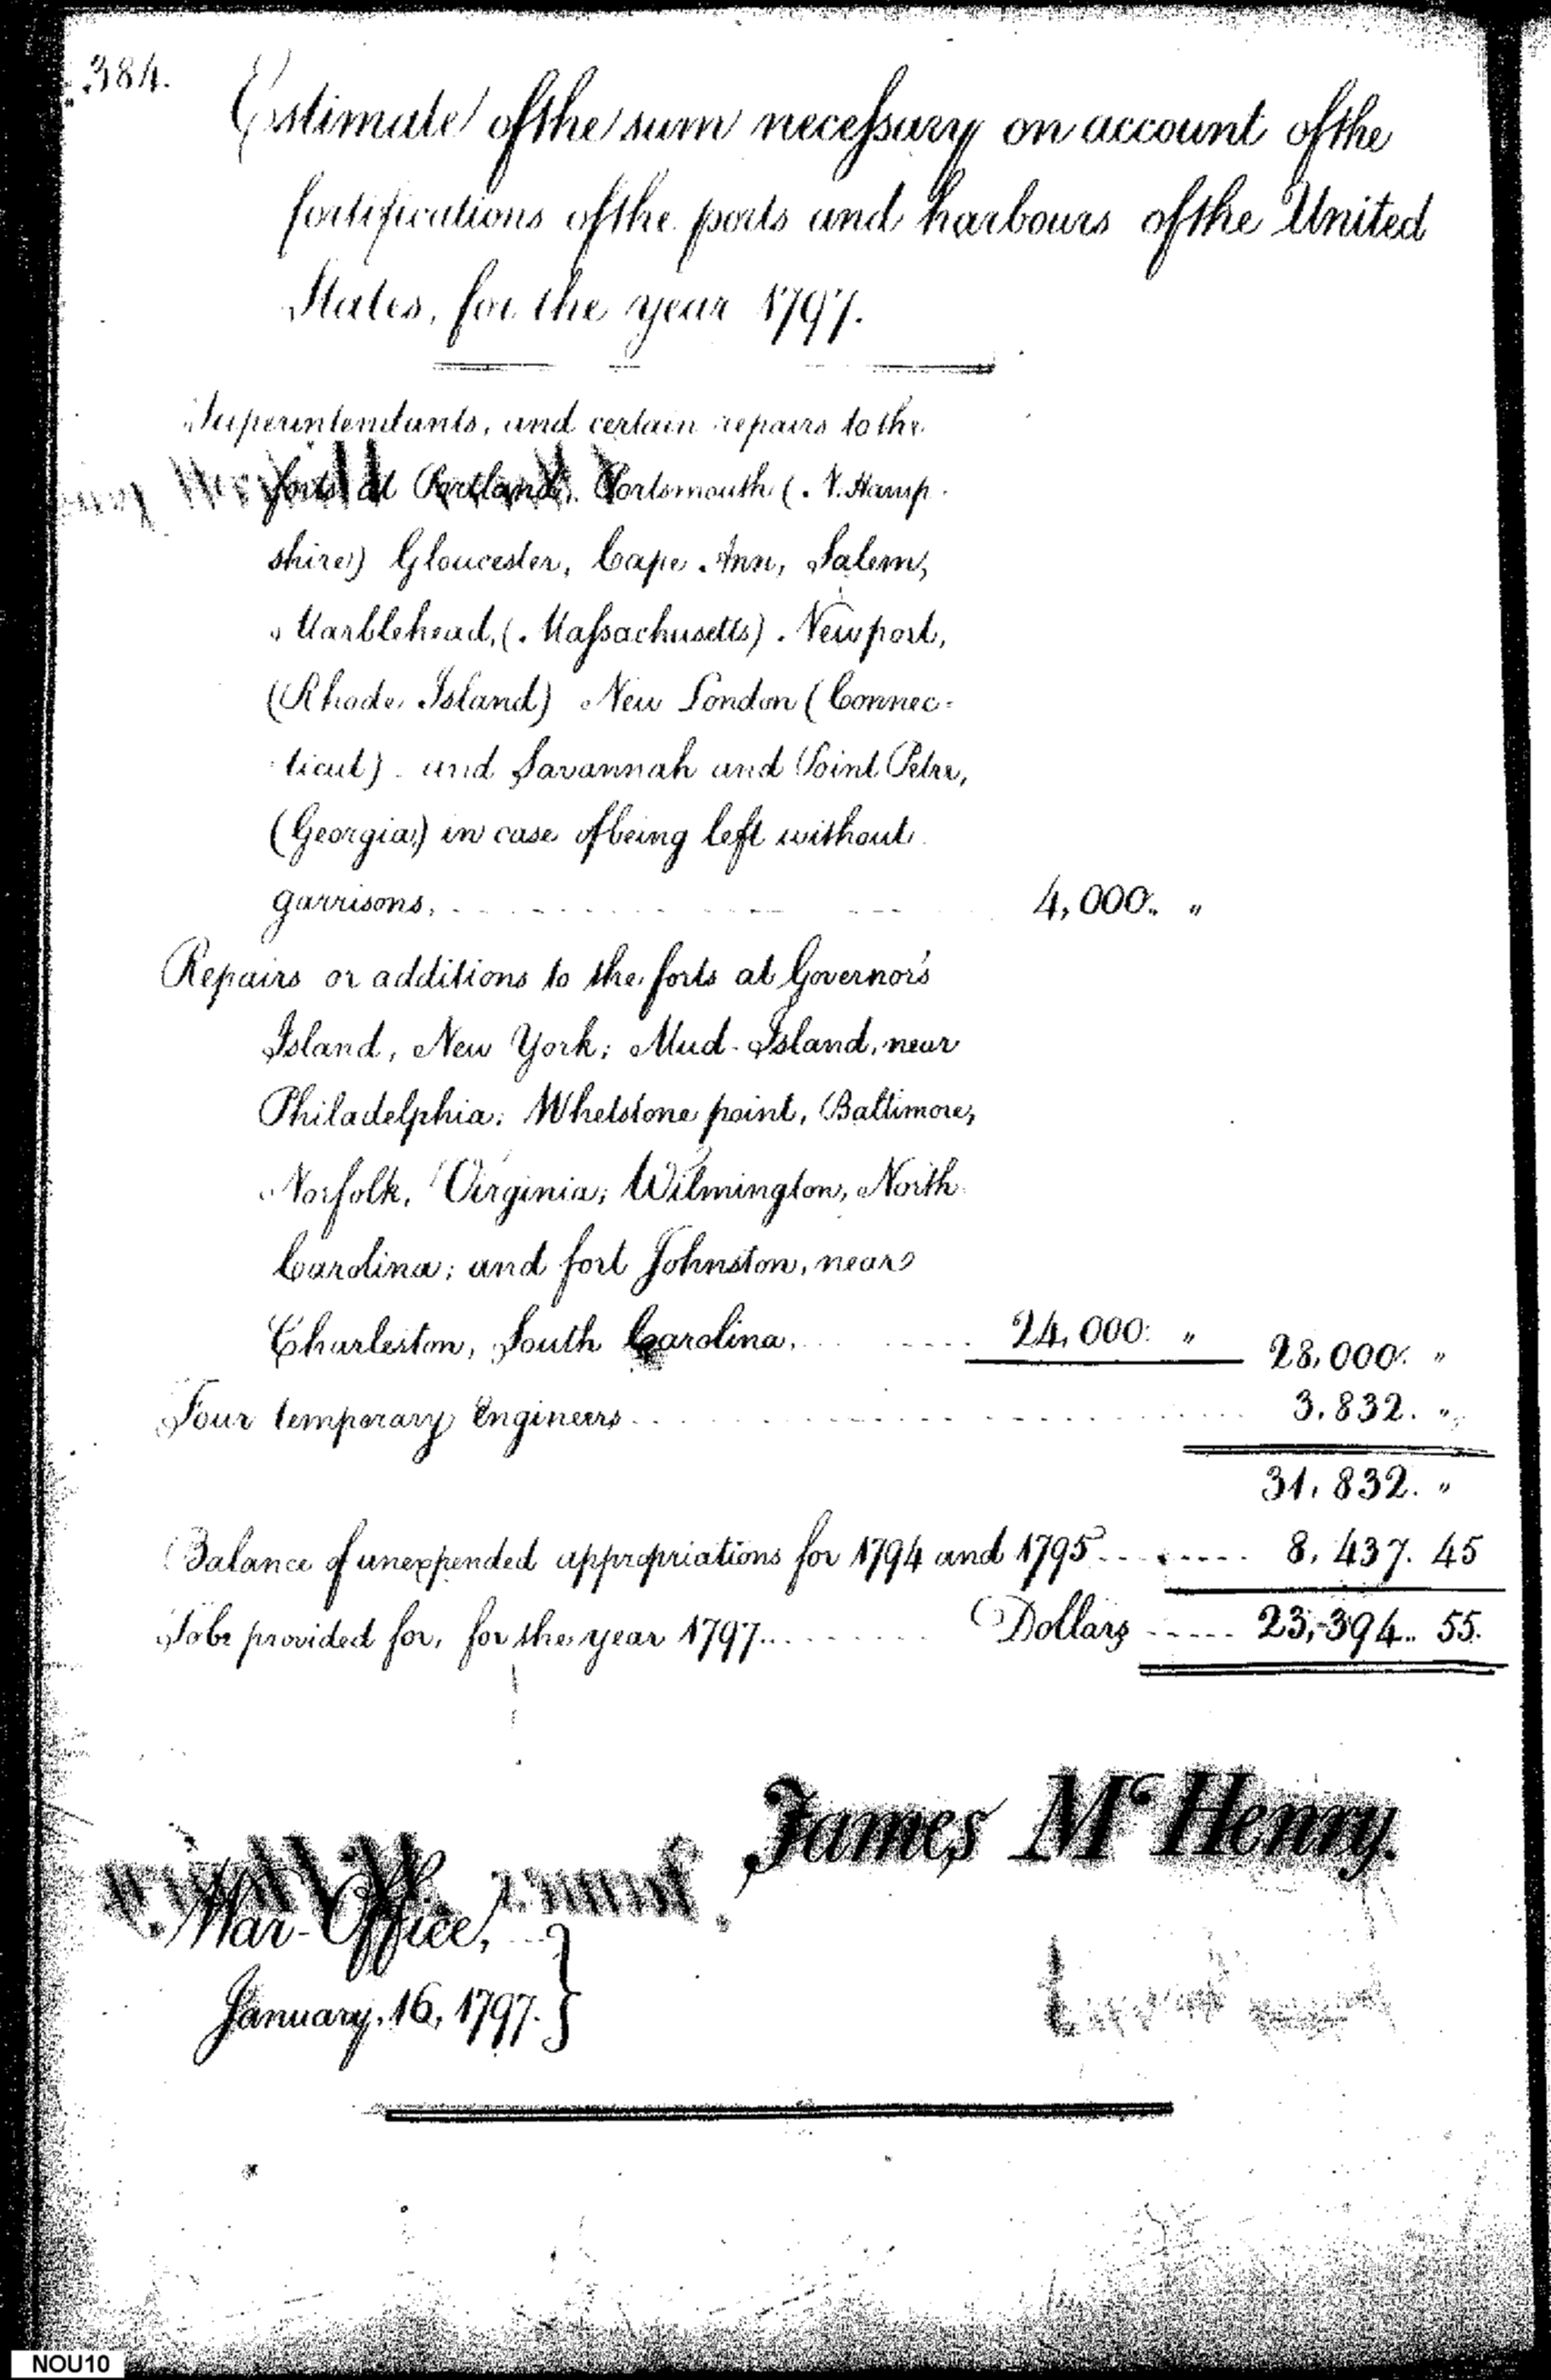 384.
Estimate of the sum necessary on account of the
fortifications of the ports and harbours of the United
States, for the year 1797.
Superintendants, and certain repairs to the
forts at Portland, Portsmouth (N. Hamp-
shire) Gloucester, Cape Ann, Salem,
Marblehead, (Massachusetts). Newport,
(Rhode Island) New London (Connec=
ticut) and Savannah and Point Petre,
(Georgia) in case of being left without
garrisons, 4,000. "
Repairs or additions to the forts at Governor's
Island, New York; Mud-Island, near
Philadelphia; Whetstone point, Baltimore,
Norfolk, Virginia; Wilmington, North
Carolina; and fort Johnston, near
Charleston, South Carolina, 24,000. " 28,000. "
Four temporary Engineers 3,832. "
31,832. "
Balance of unexpended appropriations for 1794 and 1795 8,437. 45
To be provided for, for the year 1797 Dollars 23,394. 55.
James McHenry.
War-Office,
January, 16, 1797.
NOU10